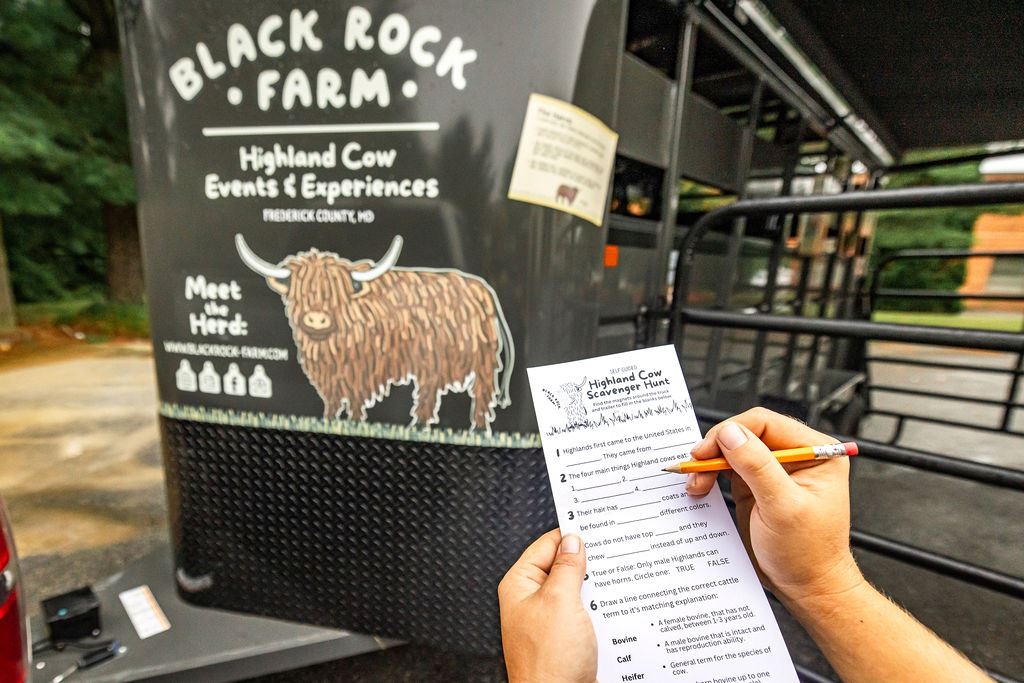 BLACK ROCK
• FARM •
Highland Cow
Events & Experiences
FREDERICK COUNTY, MD
Meet
the
Herd:
WWW.BLACKROCK-FARM.COM
SELF GUIDED
Highland Cow
Scavenger Hunt
Find the magnets around the truck
and trailer to fill in the blanks below
1 Highlands first came to the United States in
________. They came from ________.
2 The four main things Highland cows eat:
1.________ 2. ________
3.________ 4.________
3 Their hair has ________ coats an
be found in ________ different colors.
Cows do not have top ____ and they
chew ________ instead of up and down.
True or False: Only male Highlands can
have horns. Circle one: TRUE FALSE
6 Draw a line connecting the correct cattle
term to it's matching explanation:
Bovine
Calf
Heifer
• A female bovine, that has not
calved, between 1-3 years old.
• A male bovine that is intact and
has reproduction ability.
• General term for the species of
cow.
bovine up to one